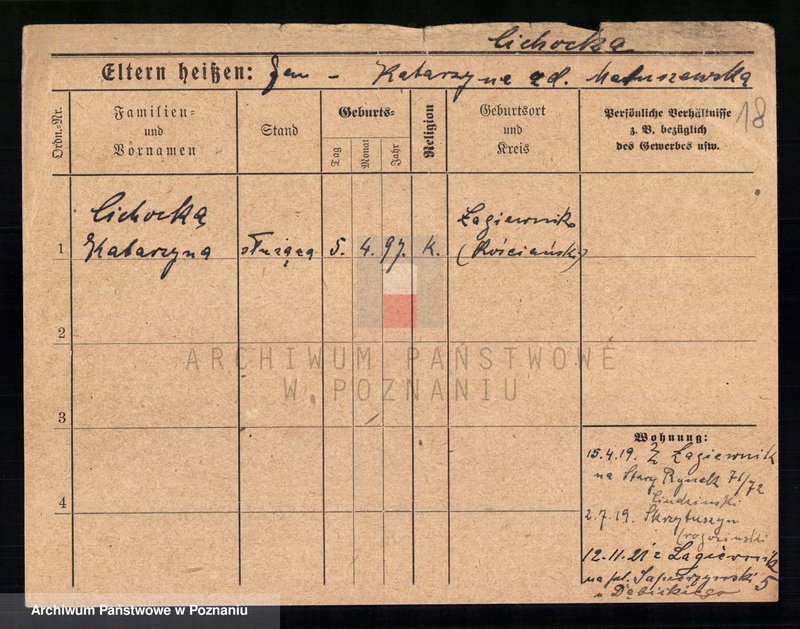 Cichocka
Eltern heißen: Jan - Katarzyna zd. Matuszewska
18
Ordn.-Nr.
Familien-
und
Vornamen
Stand
Geburts-
Tag
Monat
Jahr
Religion
Geburtsort
und
Kreis
Persönliche Verhältnisse
z. B. bezüglich
des Gewerbes usw.
Cichocka
1 Katarzyna służąca 5. 4. 97. K. Łagiewniki
(Kościański)
2
ARCHIWUM PAŃSTWOWE
W POZNANIU
3
4
Wohnung:
15.4.19. Z Łagiewnik
na Stary Rynek 71/72
2.7.19. Skrzetuszyn
12.11.21 z Łagiewnik
na pl. Sapieżyński 5
u Dębickiego
Archiwum Państwowe w Poznaniu